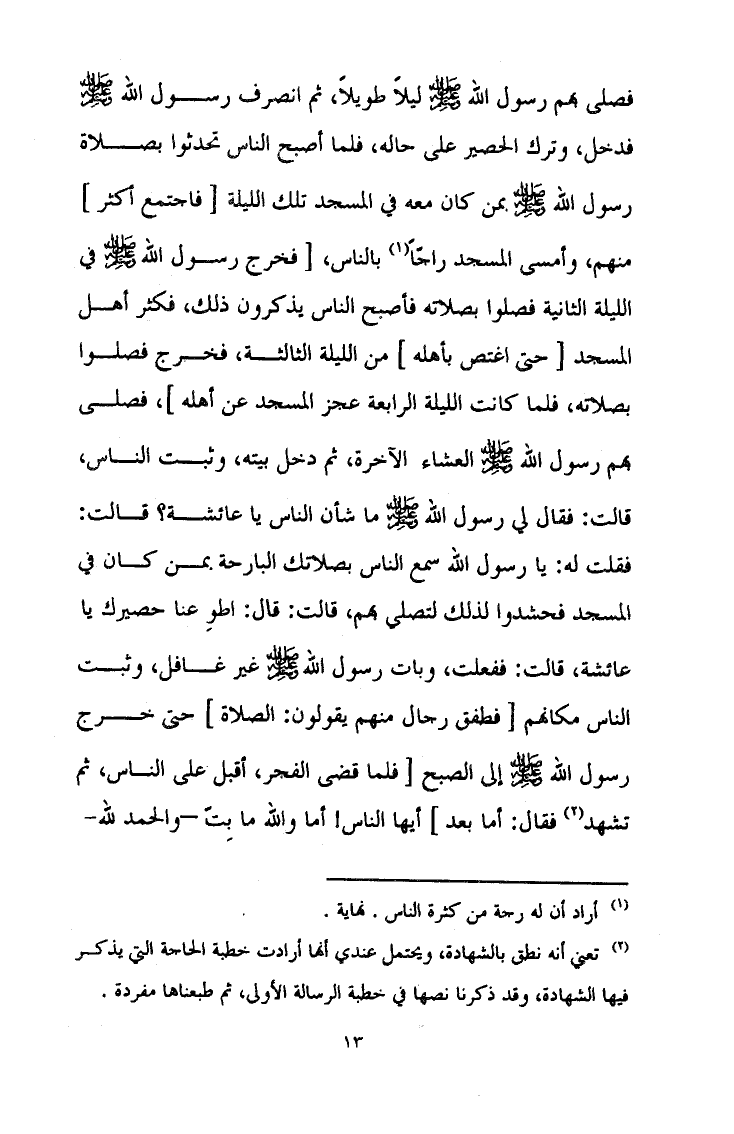 فصلى بهم رسول الله ﷺ ليلاً طويلاً، ثم انصرف رســول الله ﷺ
فدخل، وترك الحصير على حاله، فلما أصبح الناس تحدثوا بصــلاة
رسول الله ﷺ بمن كان معه في المسجد تلك الليلة [ فاجتمع أكثر ]
منهم، وأمسى المسجد راجّاً(١) بالناس، [ فخرج رسول الله ﷺ في
الليلة الثانية فصلوا بصلاته فأصبح الناس يذكرون ذلك، فكثر أهــل
المسجد [ حتى اغتص بأهله ] من الليلة الثالثــة، فخــرج فصلــوا
بصلاته، فلما كانت الليلة الرابعة عجز المسجد عن أهله ]، فصلــى
بهم رسول الله ﷺ العشاء الآخرة، ثم دخل بيته، وثبــت النــاس،
قالت: فقال لي رسول الله ﷺ ما شأن الناس يا عائشــة؟ قــالت:
فقلت له: يا رسول الله سمع الناس بصلاتك البارحة بمــن كــان في
المسجد فحشدوا لذلك لتصلي بهم، قالت: قال: اطوِ عنا حصيرك يا
عائشة، قالت: ففعلت، وبات رسول الله ﷺ غير غــافل، وثبــت
الناس مكانهم [ فطفق رجال منهم يقولون: الصلاة ] حتى خــرج
رسول الله ﷺ إلى الصبح [ فلما قضى الفجر، أقبل على النــاس، ثم
تشهد(٢) فقال: أما بعد ] أيها الناس! أما والله ما بِتّ –والحمد لله–
(١) أراد أن له رجة من كثرة الناس . نهاية .
(٢) تعني أنه نطق بالشهادة، ويحتمل عندي أنها أرادت خطبة الحاجة التي يذكــر
فيها الشهادة، وقد ذكرنا نصها في خطبة الرسالة الأولى، ثم طبعناها مفردة .
١٣